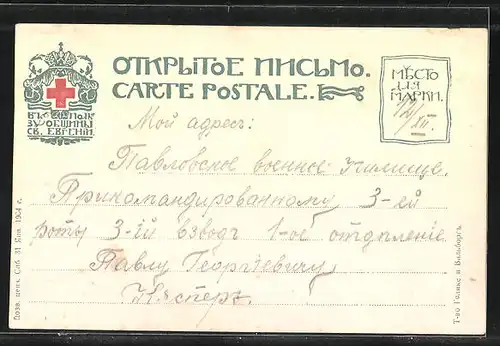 ОТКРЫТОЕ ПИСЬМО.
CARTE POSTALE.
МѢСТО
ДЛЯ
МАРКИ.
ВЪ ПОЛЬ
ЗУ ОБЩИНЫ
СВ. ЕВГЕНІИ.
Мой адресъ:
Павловское военное Училище.
Прикомандированному 3-ей
роты 3-ій взводъ 1-ое отдѣленіе
Павлу Георгіевичу
Дозв. ценз. Спб. 31 Янв. 1904 г.
Т-во Голике и Вильборгъ.